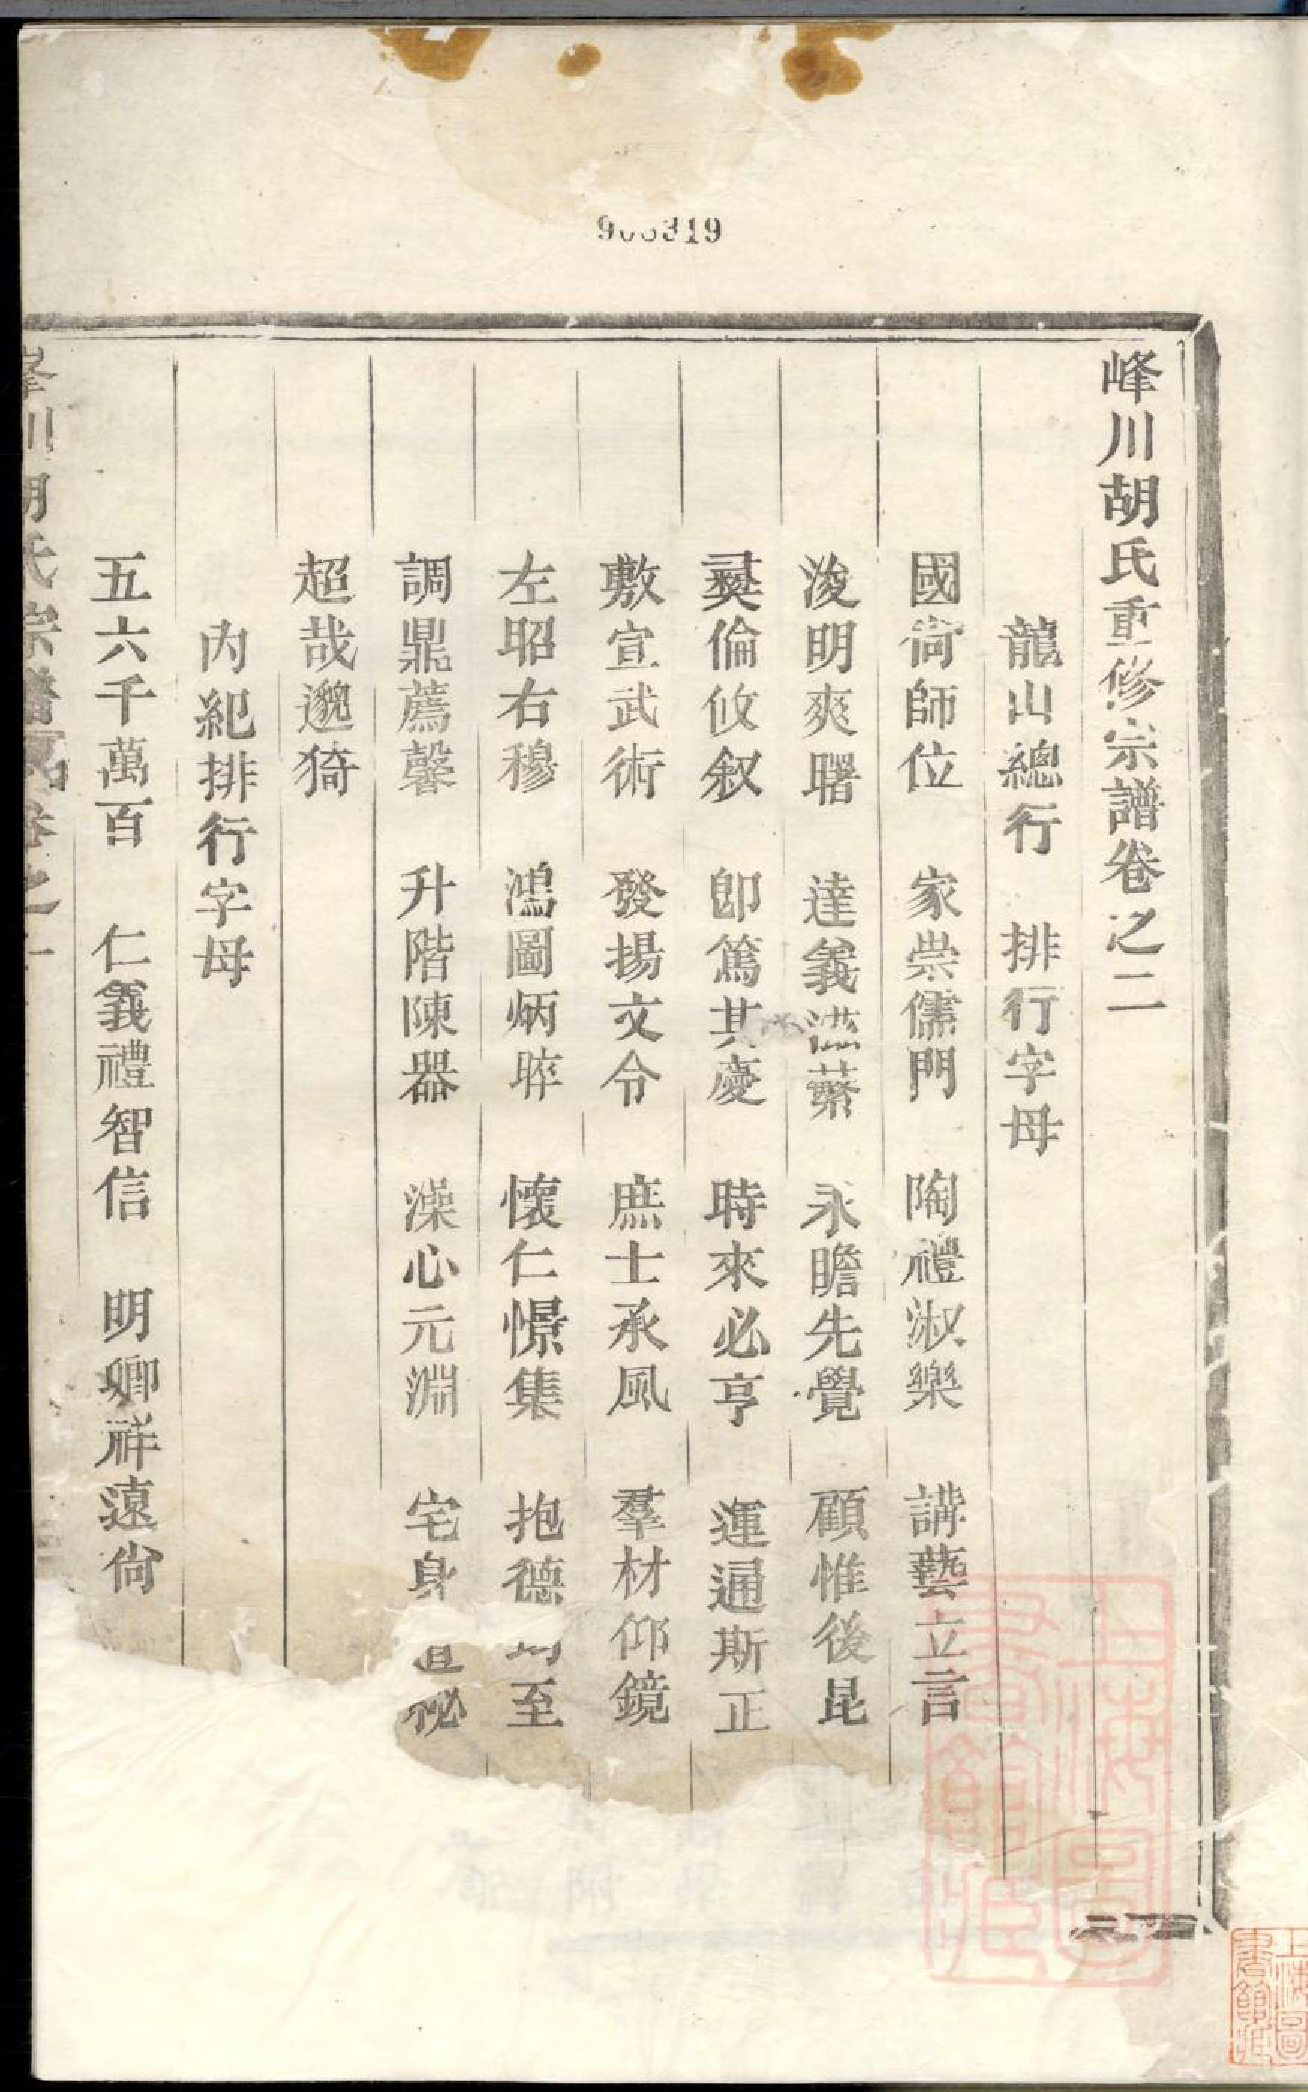 峰川胡氏重修宗譜卷之二
龍山總行　排行字母
國尚師位　家崇儒門　陶禮淑樂　講藝立言
浚明爽曙　達義　永瞻先覺　顧惟後昆
彛倫攸敘　卽篤其慶　時來必亨　運通斯正
敷宣武術　發揚文令　庶士承風　羣材仰鏡
左昭右穆　鴻圖炳晬　懷仁憬集　抱德至
調鼎薦馨　升階陳器　澡心元淵　宅身道秘
超哉邈猗
內紀排行字母
五六千萬百　仁義禮智信　明卿祥遠尚
川胡氏宗譜卷之二
906319
上海圖書館藏
上海圖書館藏